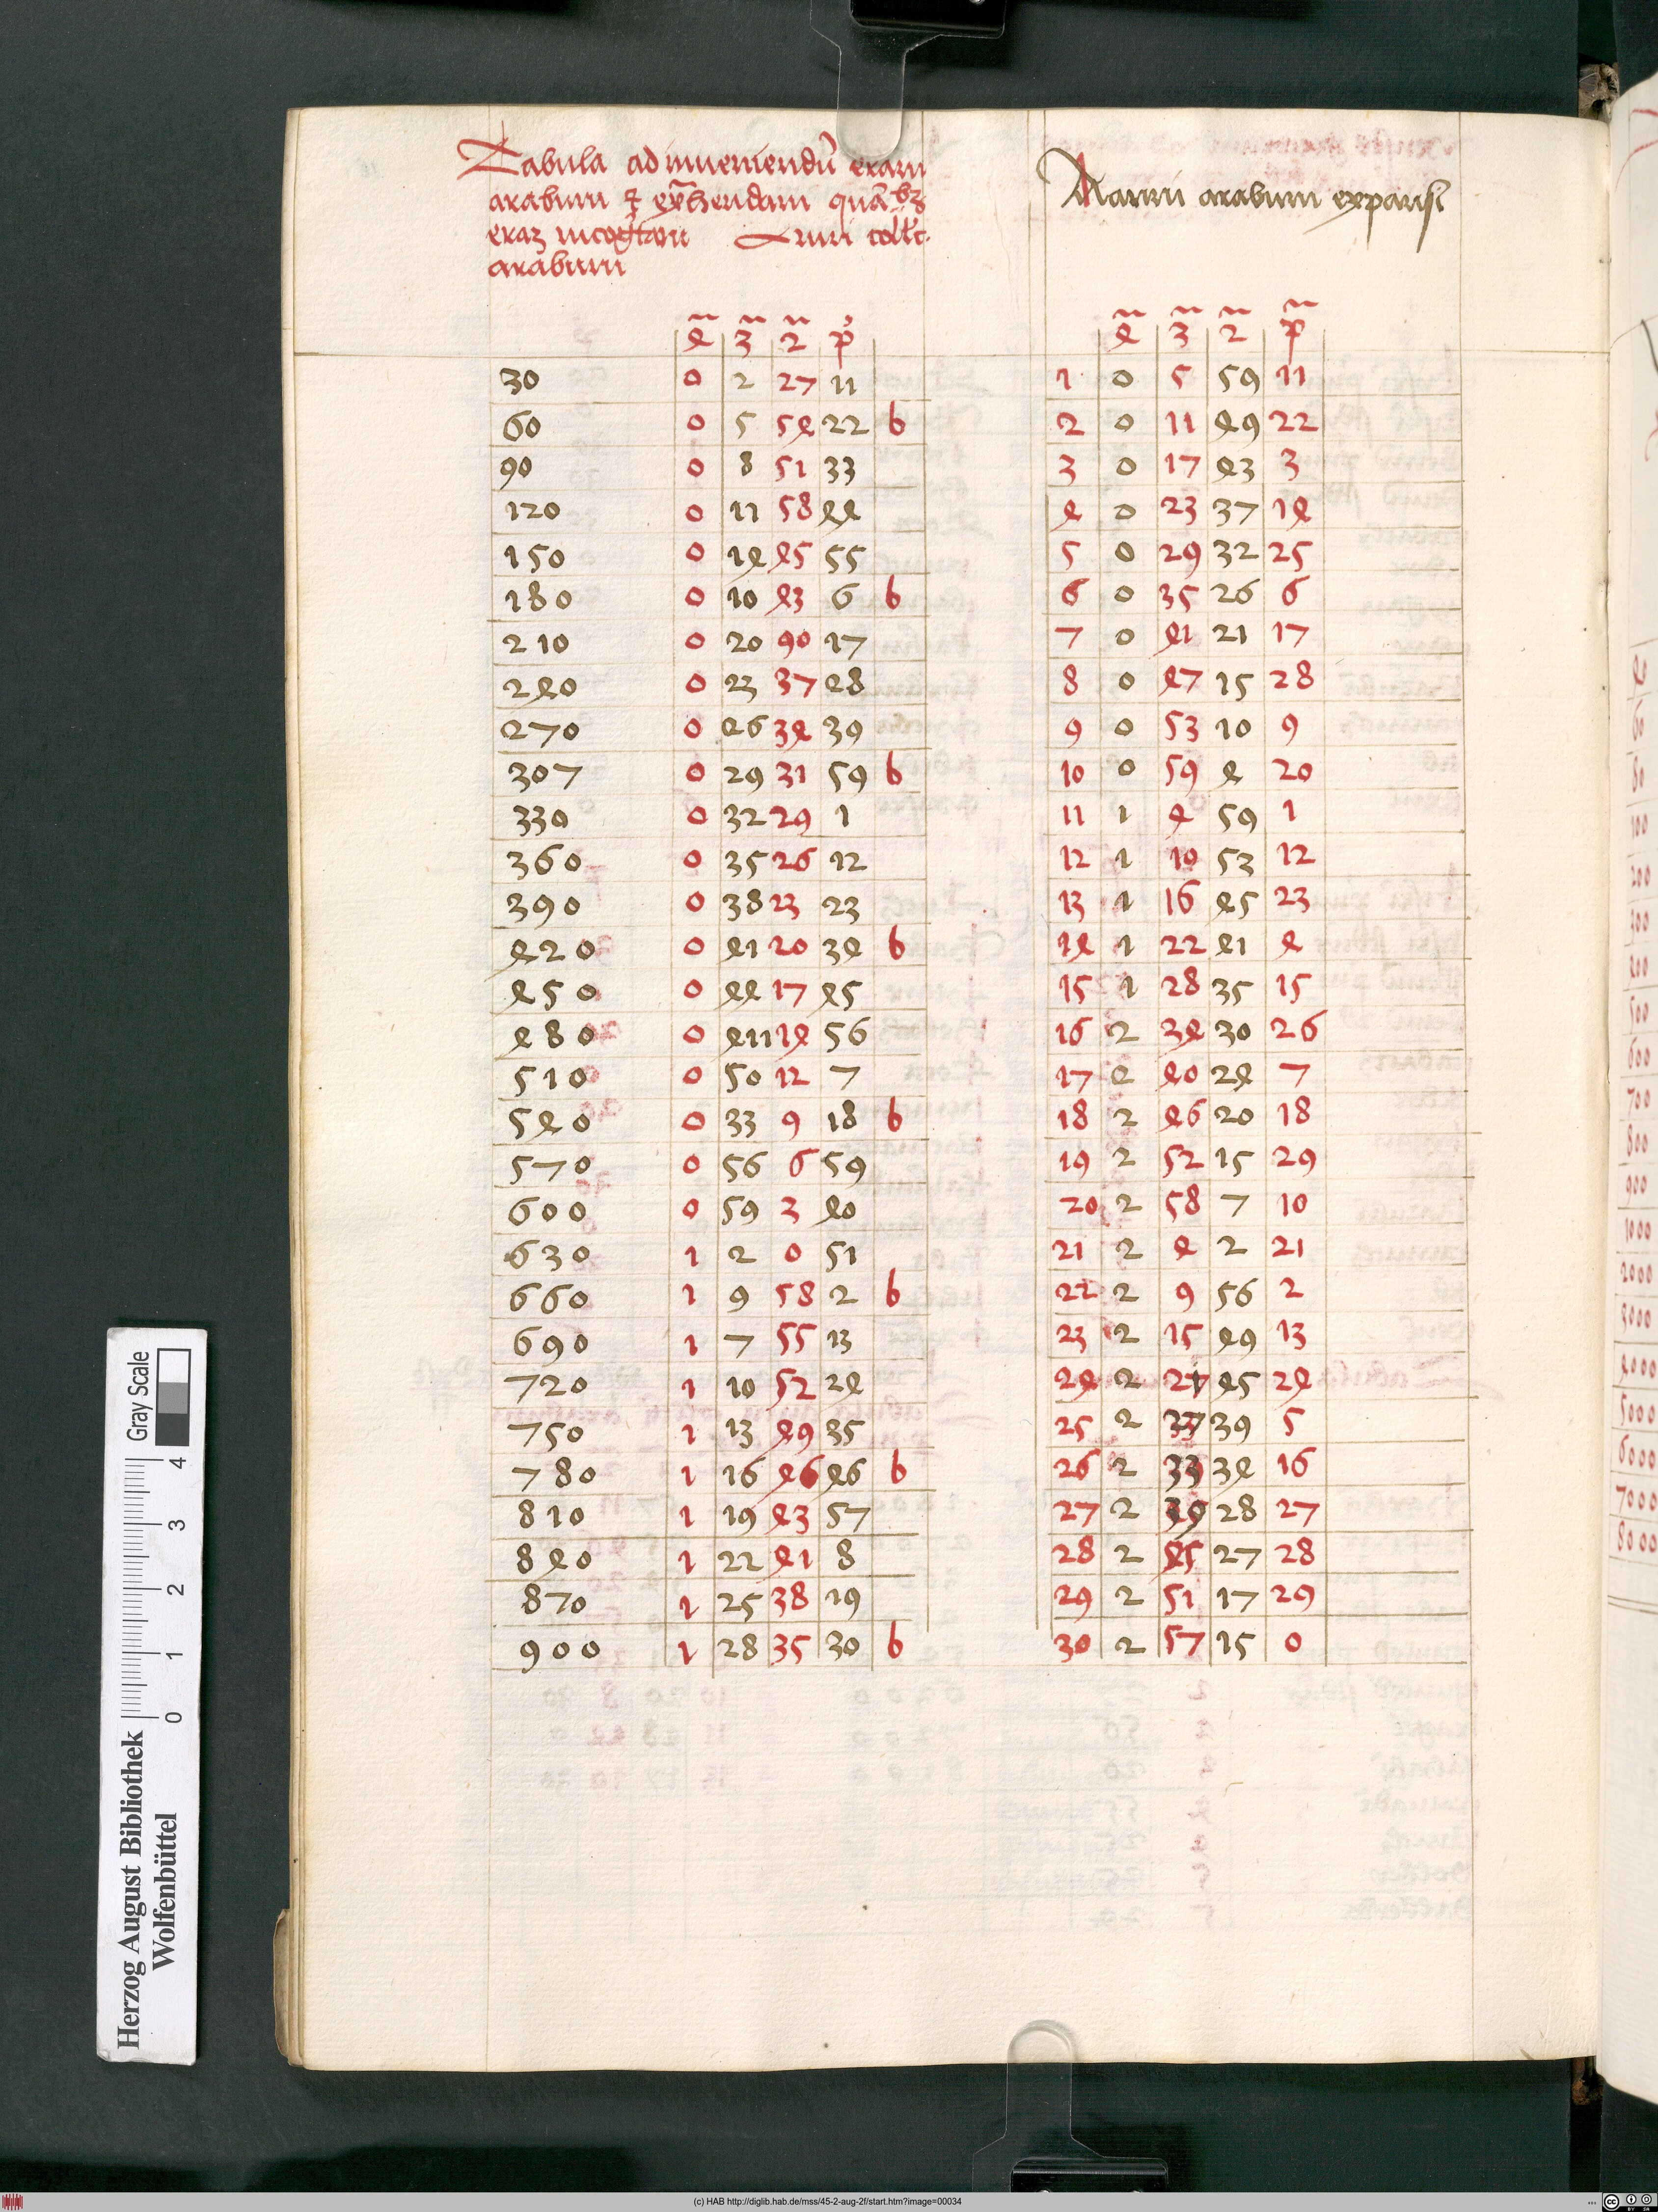 Tabula ad inveniendū eram
arabum
eraȝ Anni coll'c.
arabum
4 3 2 p
30 0 2 27 11
60 0 5 54 22 b
90 0 8 51 33
120 0 11 58 44
150 0 14 45 55
180 0 10 43 6 b
210 0 20 90 17
240 0 23 37 28
270 0 26 34 39
307 0 29 31 59 b
330 0 32 29 1
360 0 35 26 12
390 0 38 23 23
420 0 41 20 34 b
450 0 44 17 45
480 0 411 14 56
510 0 50 12 7
540 0 33 9 18 b
570 0 56 6 59
600 0 59 3 40
630 1 2 0 51
660 1 9 58 2 b
690 1 7 55 13
720 1 10 52 24
750 1 13 49 35
780 1 16 46 46 b
810 1 19 43 57
840 1 22 41 8
870 1 25 38 19
900 1 28 35 30 b
Anni arabum expansi
4 3 2 p
1 0 5 59 11
2 0 11 49 22
3 0 17 43 3
4 0 23 37 14
5 0 29 32 25
6 0 35 26 6
7 0 41 21 17
8 0 47 15 28
9 0 53 10 9
10 0 59 4 20
11 1 4 59 1
12 1 10 53 12
13 1 16 45 23
14 1 22 41 4
15 1 28 35 15
16 2 34 30 26
17 2 40 24 7
18 2 46 20 18
19 2 52 15 29
20 2 58 7 10
21 2 4 2 21
22 2 9 56 2
23 2 15 49 13
24 2 21 45 24
25 2 27 39 5
26 2 33 34 16
27 2 39 28 27
28 2 45 27 28
29 2 51 17 29
30 2 57 15 0
600
700
800
900
1000
2000
3000
4000
5000
6000
7000
8000
Herzog August Bibliothek
Wolfenbüttel
0 1 2 3 4
Gray Scale
(c) HAB http://diglib.hab.de/mss/45-2-aug-2f/start.htm?image=00034